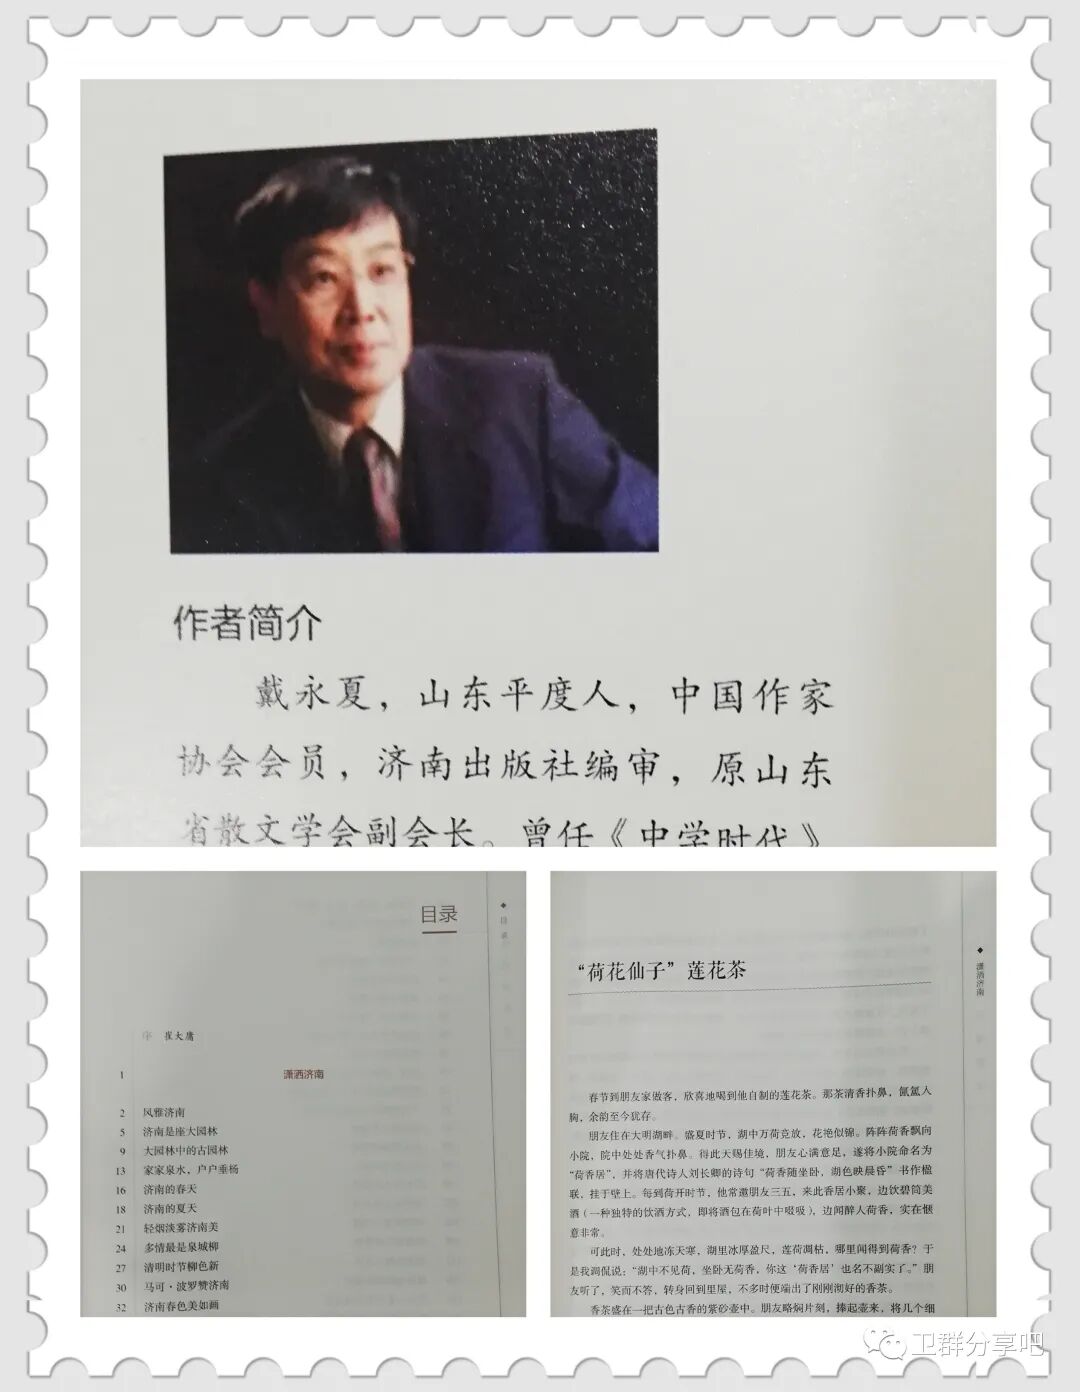 作者简介
戴永夏，山东平度人，中国作家
协会会员，济南出版社编审，原山东
省散文学会副会长。曾任《中学时代》
目录
◆目录
序 崔大庸
1 潇洒济南
2 风雅济南
5 济南是座大园林
9 大园林中的古园林
13 家家泉水，户户垂杨
16 济南的春天
18 济南的夏天
21 轻烟淡雾济南美
24 多情最是泉城柳
27 清明时节柳色新
30 马可·波罗赞济南
32 济南春色美如画
◆潇洒济南
“荷花仙子”莲花茶
春节到朋友家做客，欣喜地喝到他自制的莲花茶。那茶清香扑鼻，氤氲人
胸，余韵至今犹存。
朋友住在大明湖畔。盛夏时节，湖中万荷竞放，花艳似锦。阵阵荷香飘向
小院，院中处处香气扑鼻。得此天赐佳境，朋友心满意足，遂将小院命名为
“荷香居”，并将唐代诗人刘长卿的诗句“荷香随坐卧，湖色映晨昏”书作楹
联，挂于壁上。每到荷开时节，他常邀朋友三五，来此香居小聚，边饮碧筒美
酒（一种独特的饮酒方式，即将酒包在荷叶中吸吸），边闻醉人荷香，实在惬
意非常。
可此时，处处地冻天寒，湖里冰厚盈尺，莲荷凋枯，哪里闻得到荷香？于
是我调侃说：“湖中不见荷，坐卧无荷香，你这‘荷香居’也名不副实了。”朋
友听了，笑而不答，转身回到里屋，不多时便端出了刚刚沏好的香茶。
香茶盛在一把古色古香的紫砂壶中。朋友略焖片刻，捧起壶来，将几个细
卫群分享吧